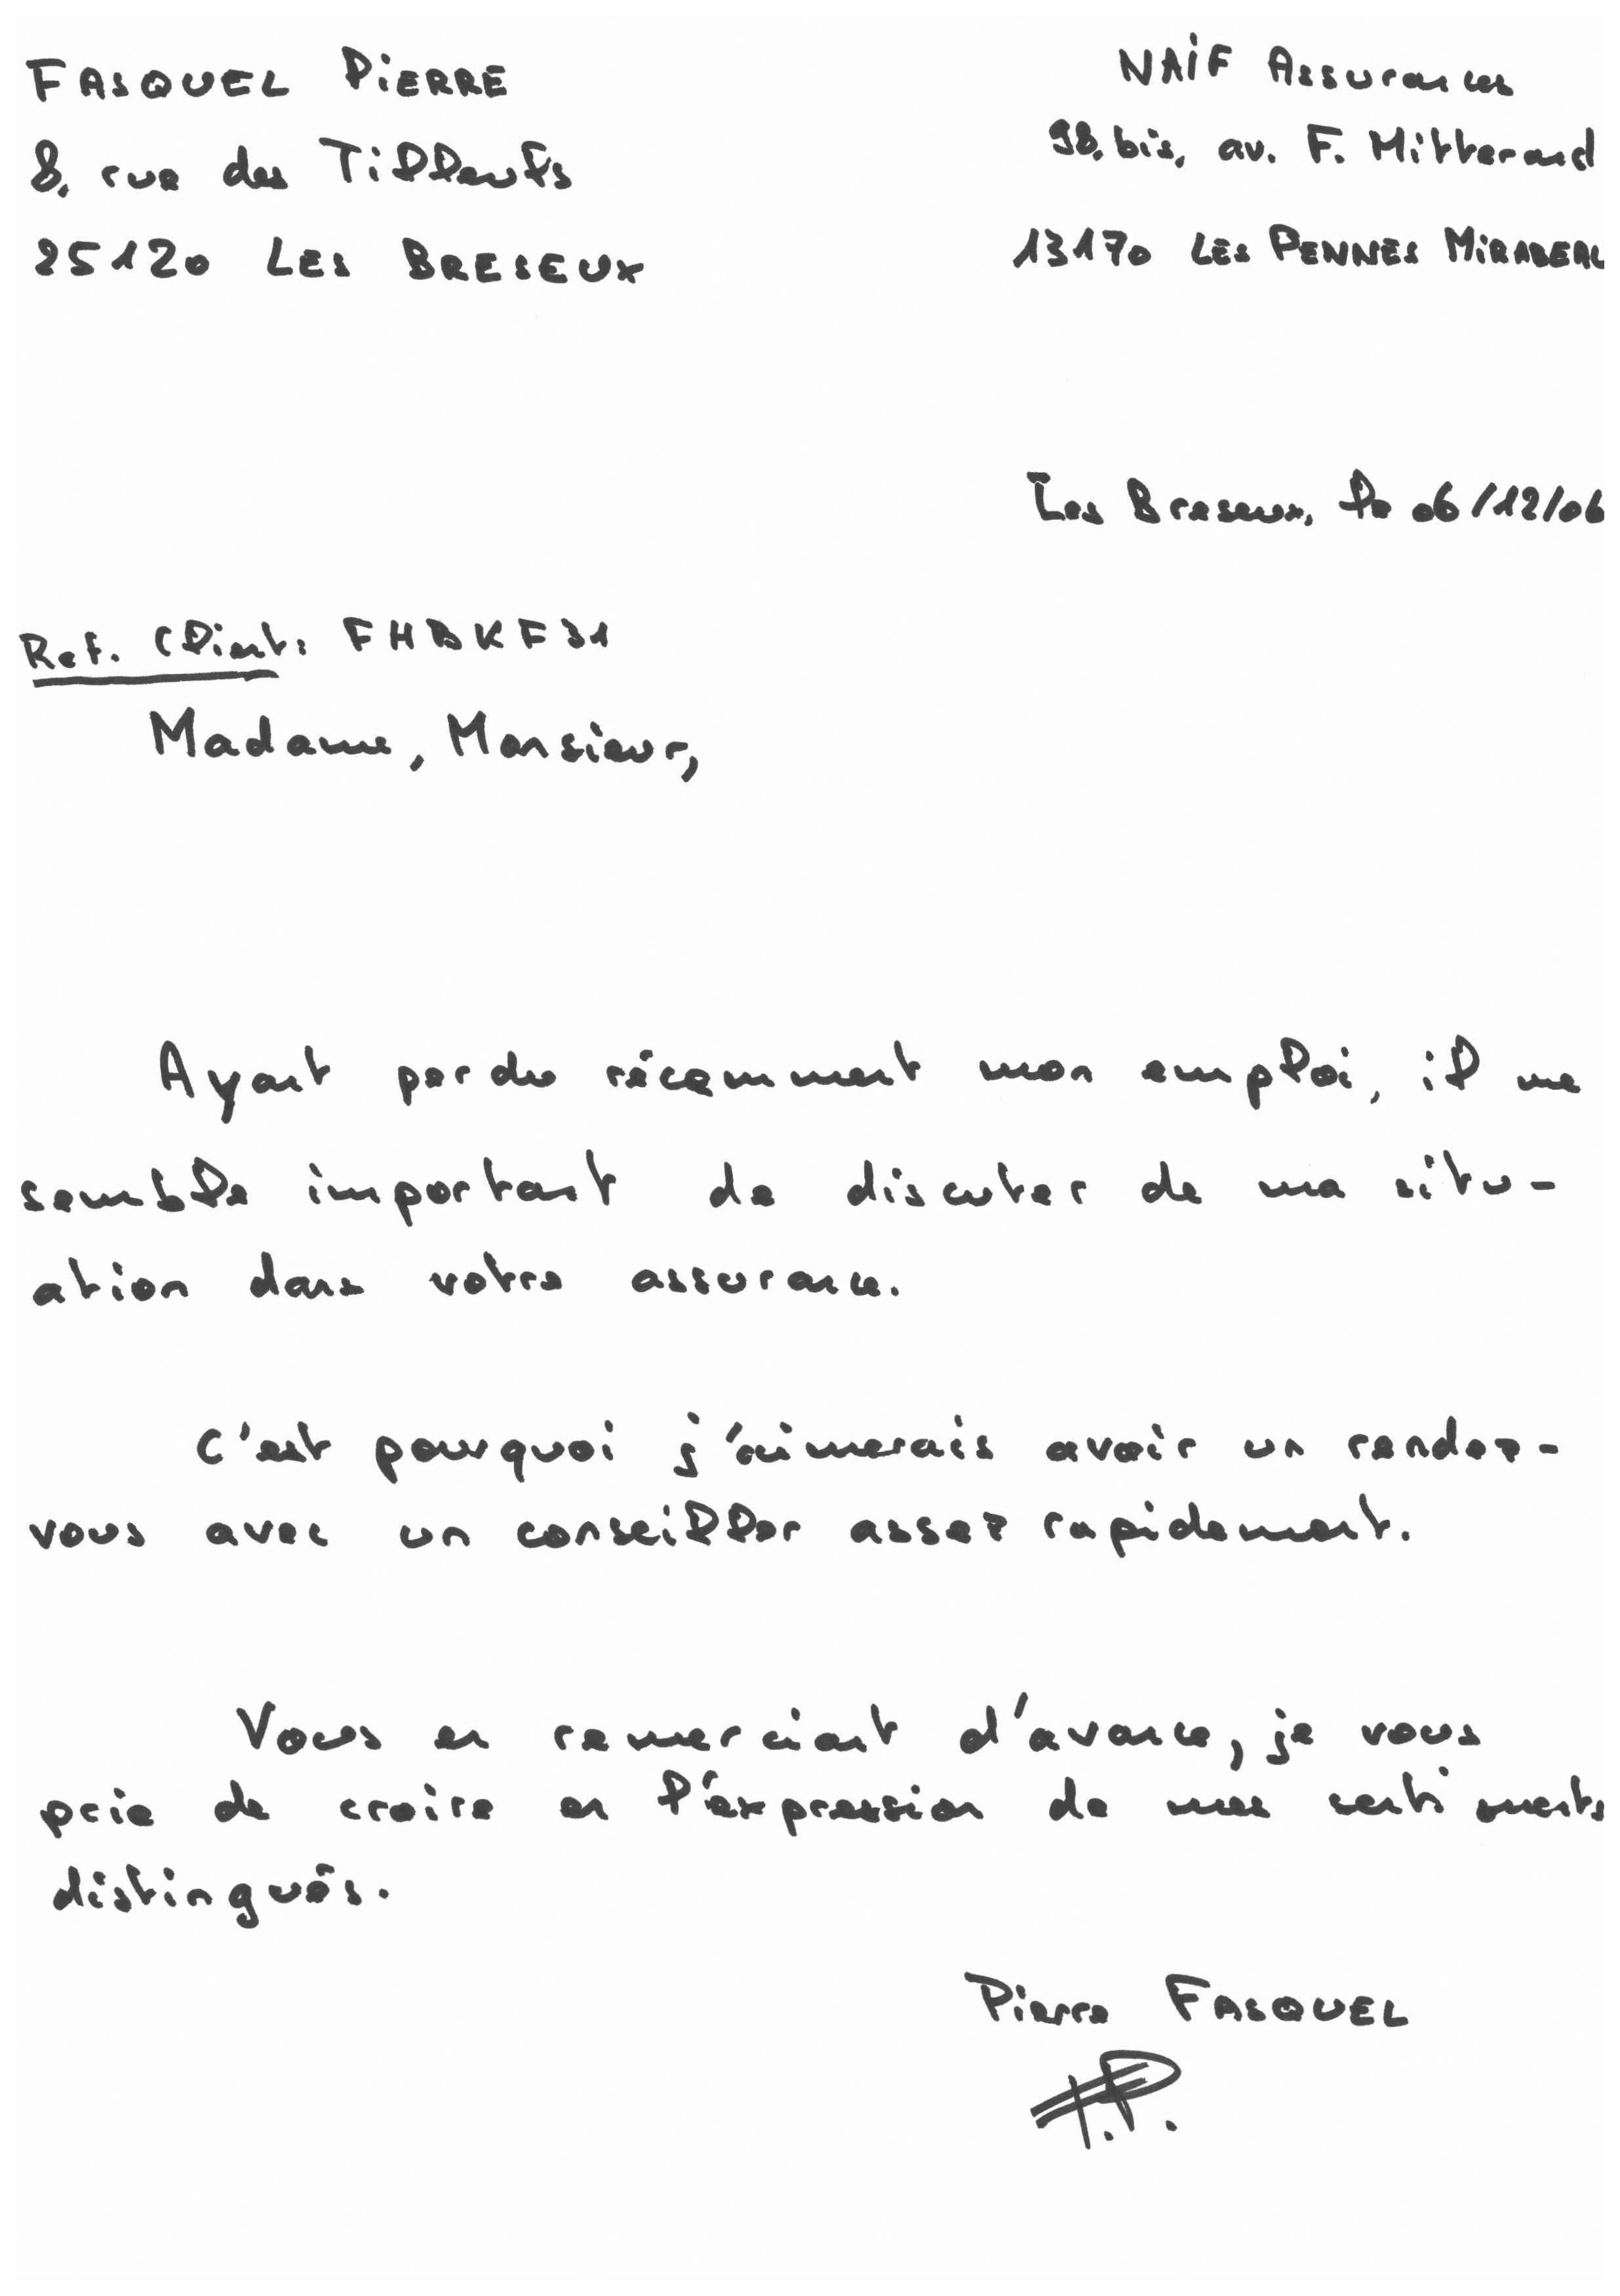 FASQUEL PIERRE
8, rue des Tilleuls
25120 LES BRESEUX
NAIF Assurances
98, bis, av. F. Mitterand
13170 LES PENNES MIRABEAU
Les Breseux, le 06/12/06
Ref. Client: FHBKF31
Madame, Monsieur,
Ayant perdu récemment mon emploi, il me
semble important de discuter de ma situ-
ation dans votre assurance.
C'est pourquoi j'aimerais avoir un rendez-
vous avec un conseiller assez rapidement.
Vous en remerciant d'avance, je vous
prie de croire en l'expression de mes sentiments
distingués.
Pierre FASQUEL
F.P.